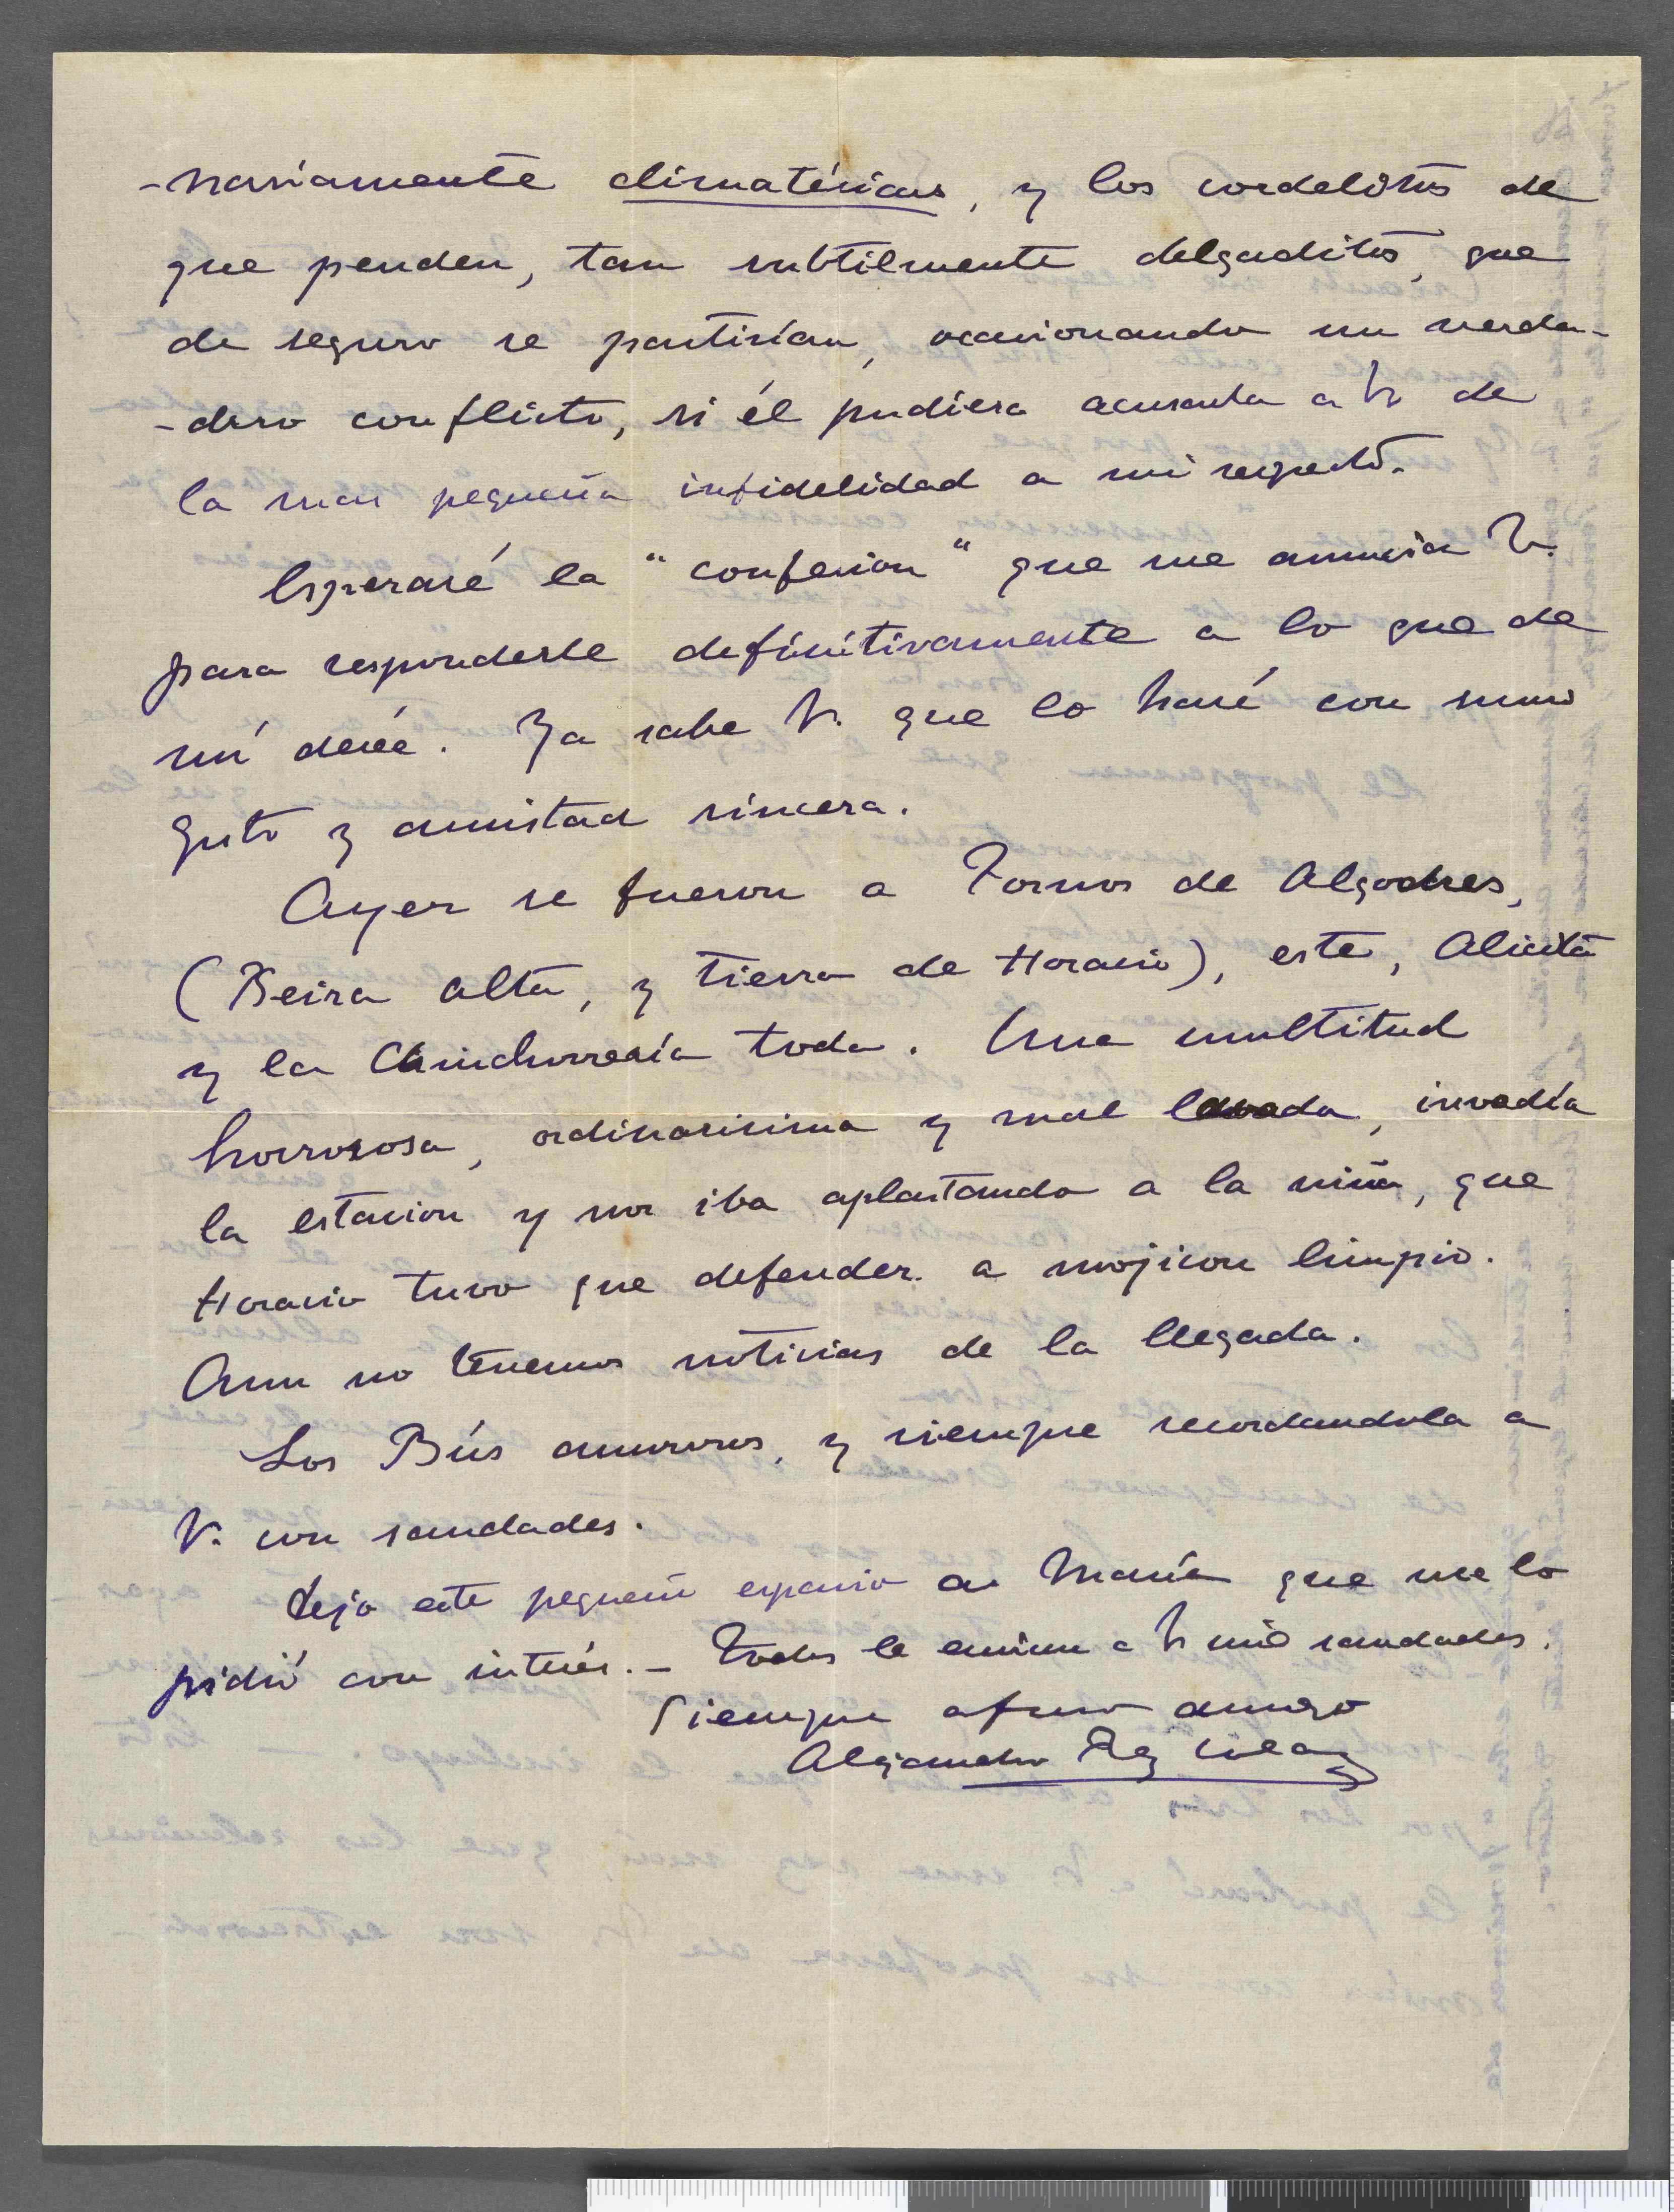 -nariamente climatéricas, y los cordelitos de
que penden, tan subtilmente delgaditos, que
de seguro se partirían, ocasionando un verda-
-dero conflicto, si él pudiera acusarla a V. de
la mas pequeña infidelidad a mi respecto.
Esperaré la "confesion" que me anuncia V.
para responderle definitivamente a lo que de
mí deseé. Ya sabe V. que lo haré con sumo
gusto y amistad sincera.
Ayer se fueron a Fornos de Algodres,
(Beira alta, y tierra de Horacio), este, Alicita
y la Chinchorrería toda. Una multitud
horrorosa, ordinarisima y mal lavada, invadía
la estacion y nos iba aplastando a la niña, que
Horacio tuvo que defender a mojicon limpio.
Aun no tenemos noticias de la llegada.
Los Bús amorosos, y siempre recordandola a
V. con saudades.
Dejo este pequeño espacio a María que me lo
pidió con interés.- Todos le envian a V. mil saudades.
Siempre afmo amigo
Alejandro